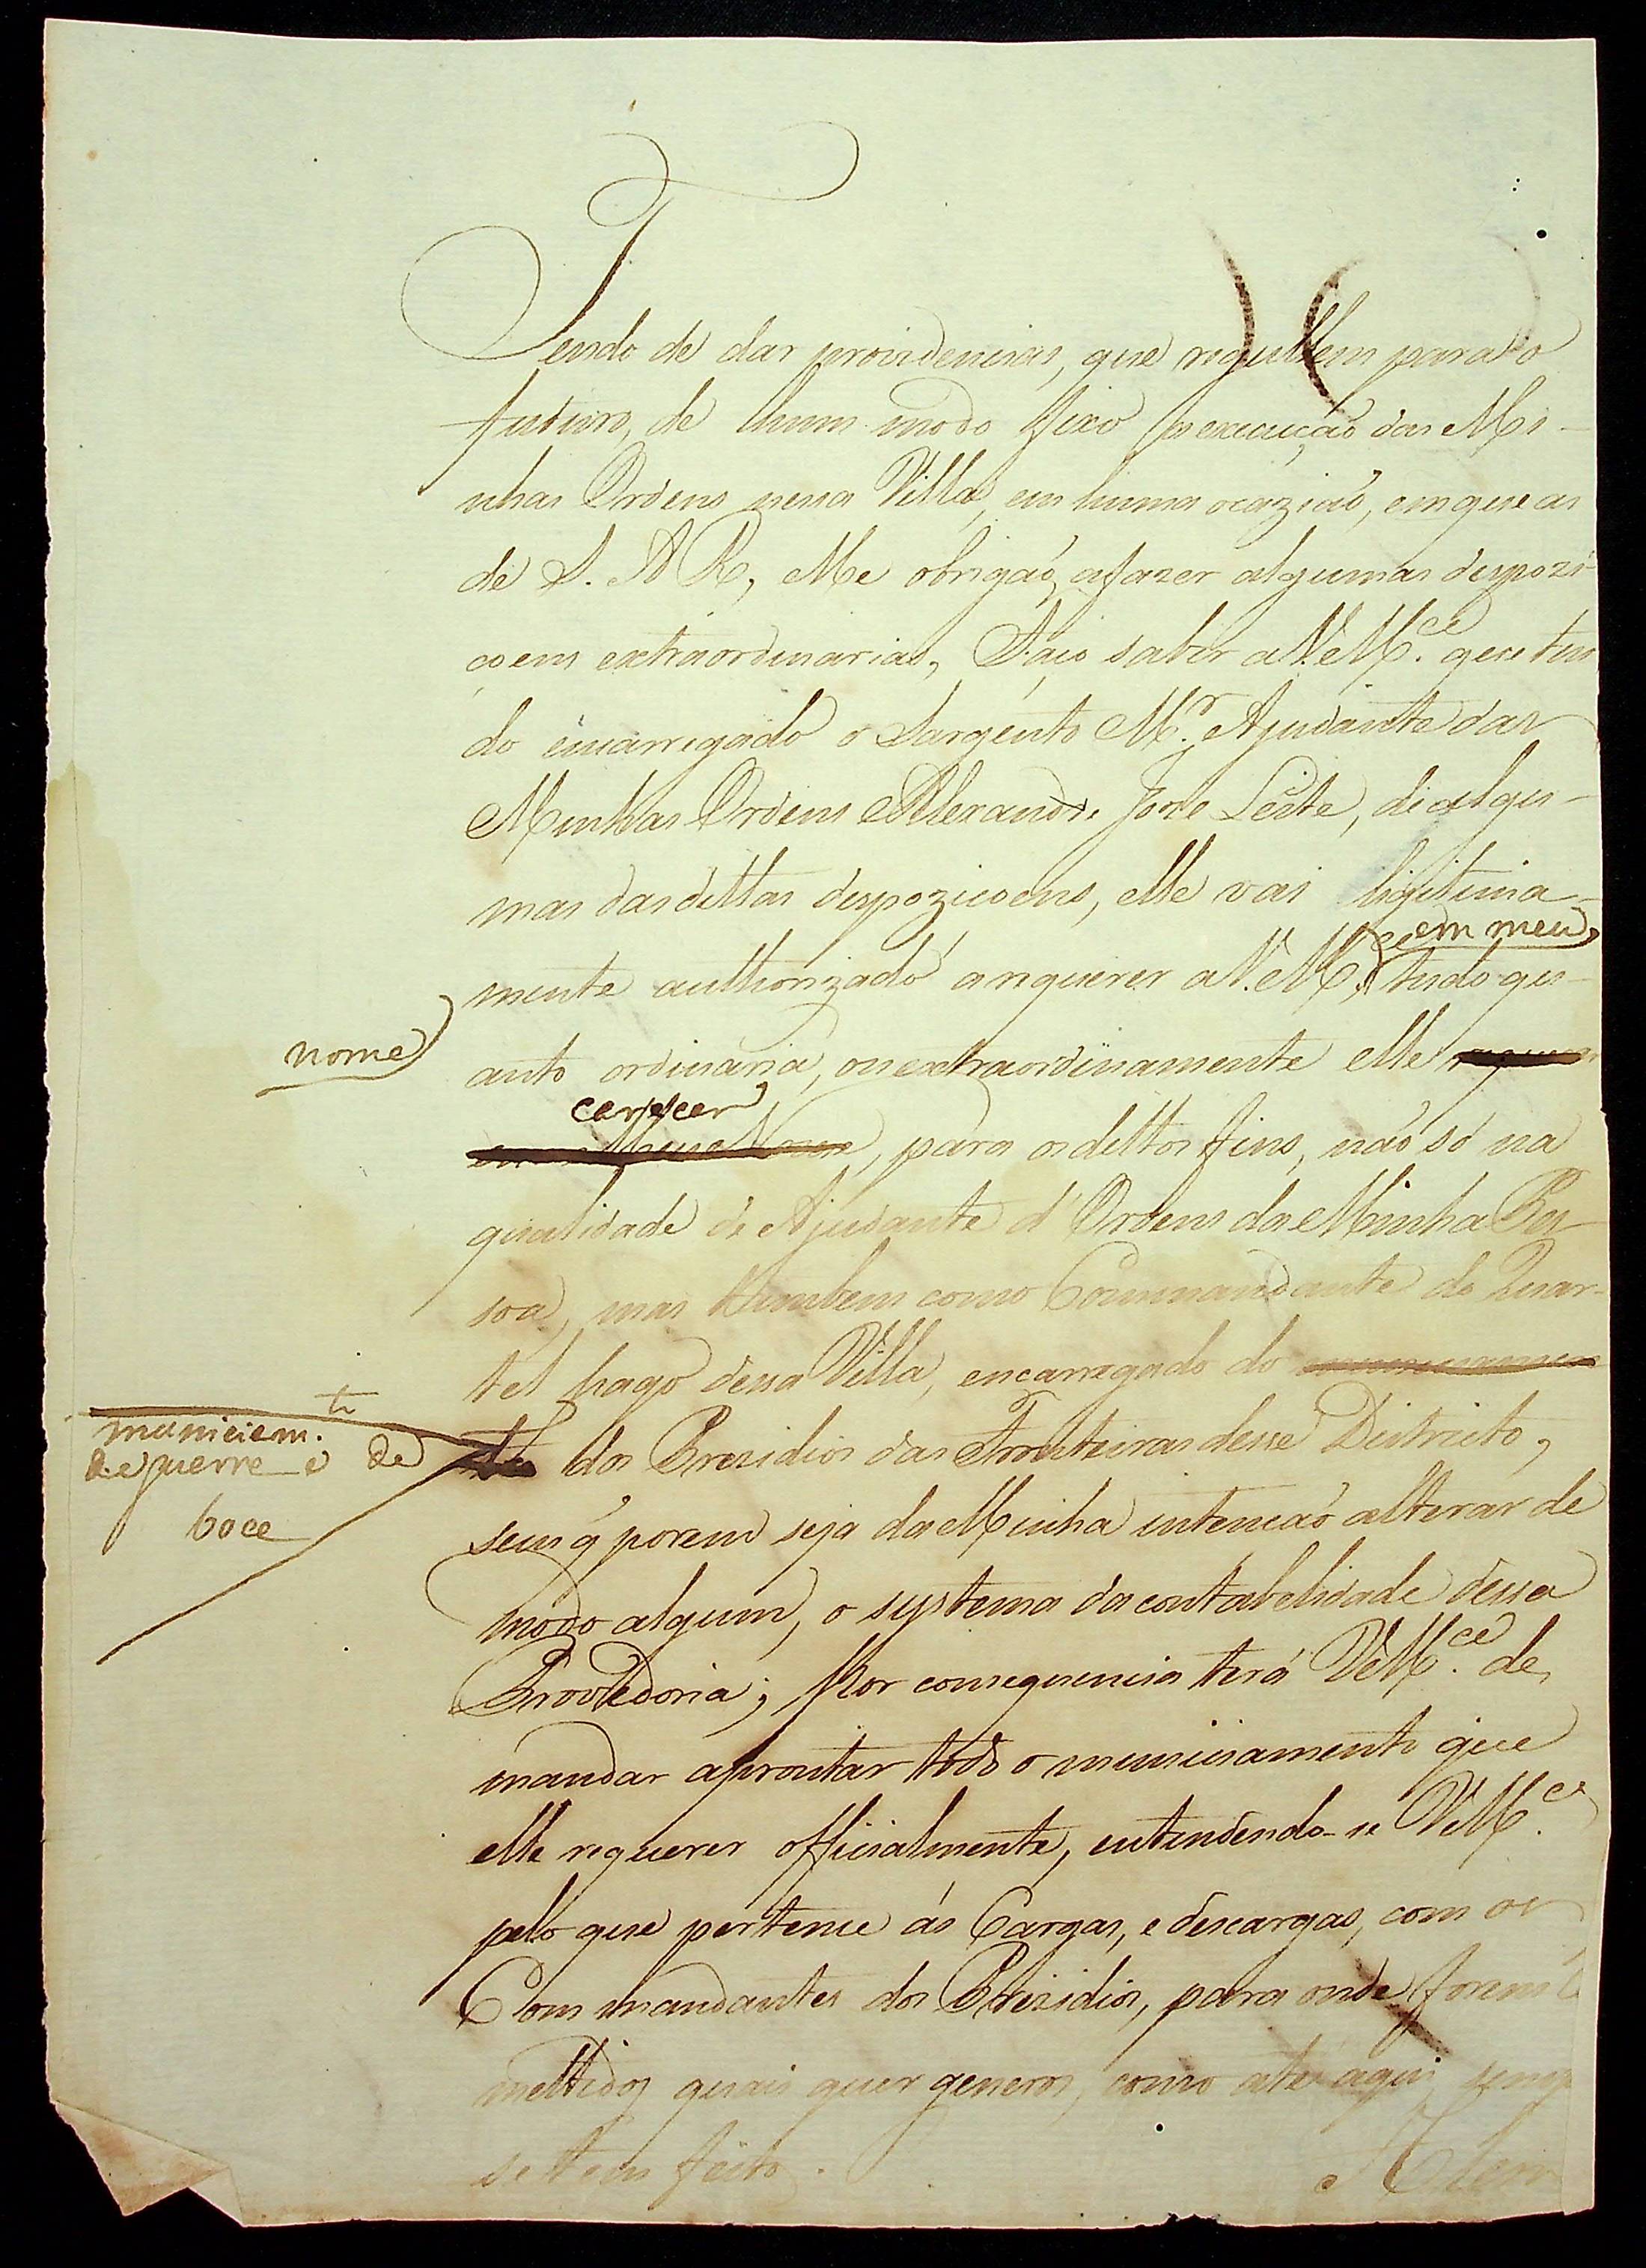 Tendo de dar providencias, que regullem para o
futuro, de hum modo fixo a execução das Mi-
nhas Ordens nessa Villa, em huma ocazião, em que as
de S. A R, Me obrigaõ, a fazer algumas despozi-
çoens extraordinarias, Faço saber a V. M.ce que ten
do encarregado o Sargento M.r Ajudante das
Minhas Ordens Alexandre Joze Leite, de algu-
mas das dittas despozicoens, elle vai legitima-
mente authorizado a requerer a V. M.ce em meu
nome
tudo qu-
anto ordinaria, ou extraordinariamente elle requerer
carecer
em Meu Nome, para os dittos fins, naõ só na
qualidade de Ajudante d'Ordens da Minha Pes-
soa, mas tambem como Commandante do Quar-
tel pago dessa Villa, encarregado do municiamen
municiam.to
de guerra e de
boca
to dos Prezidios das Fronteiras desse Districto,
sem q̃ porem seja da Minha intencaõ alterar de
modo algum, o systema da contabelidade dessa
Provedoria; Por consequencia terá V M.ce de
mandar aprontar todo o municiamento que
elle requerer officialmente, entendendo-se V M.ce
pelo que pertence ás Cargas, e descargas, com os
Commandantes dos Prezidios, para onde forem
mettidos quais quer generos, como até aqui
se tem feito.
Alem